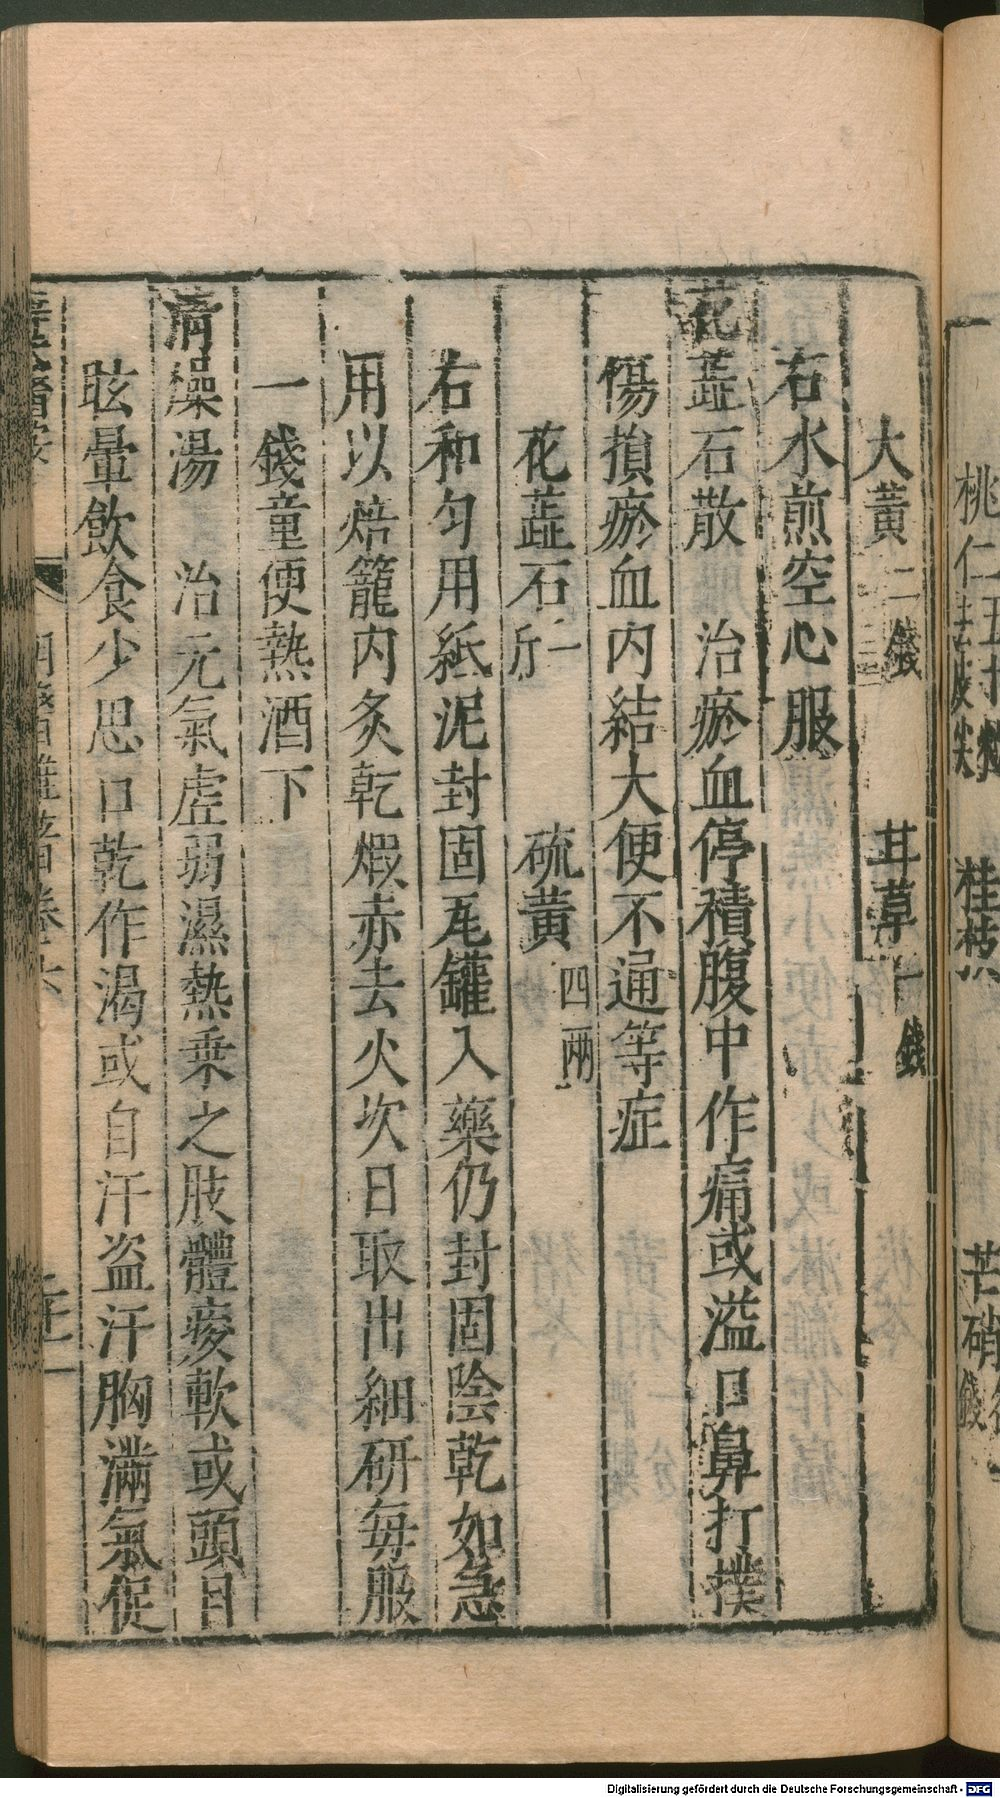 桃仁五十
桂枝
芒硝
大黃二錢 甘草一錢
右水煎空心服
花蕋石散 治瘀血停積腹中作痛或溢口鼻打撲
傷損瘀血内結大便不通等症
花蕋石一斤 硫黃四兩
右和匀用紙泥封固瓦罐入藥仍封固陰乾如急
用以焙籠内炙乾煆赤去火次日取出細研每服
一錢童便熱酒下
清燥湯 治元氣虛弱濕熱乗之肢體痠軟或頭目
眩暈飲食少思口乾作渴或自汗盗汗胸滿氣促
Digitalisierung gefördert durch die Deutsche Forschungsgemeinschaft - DFG